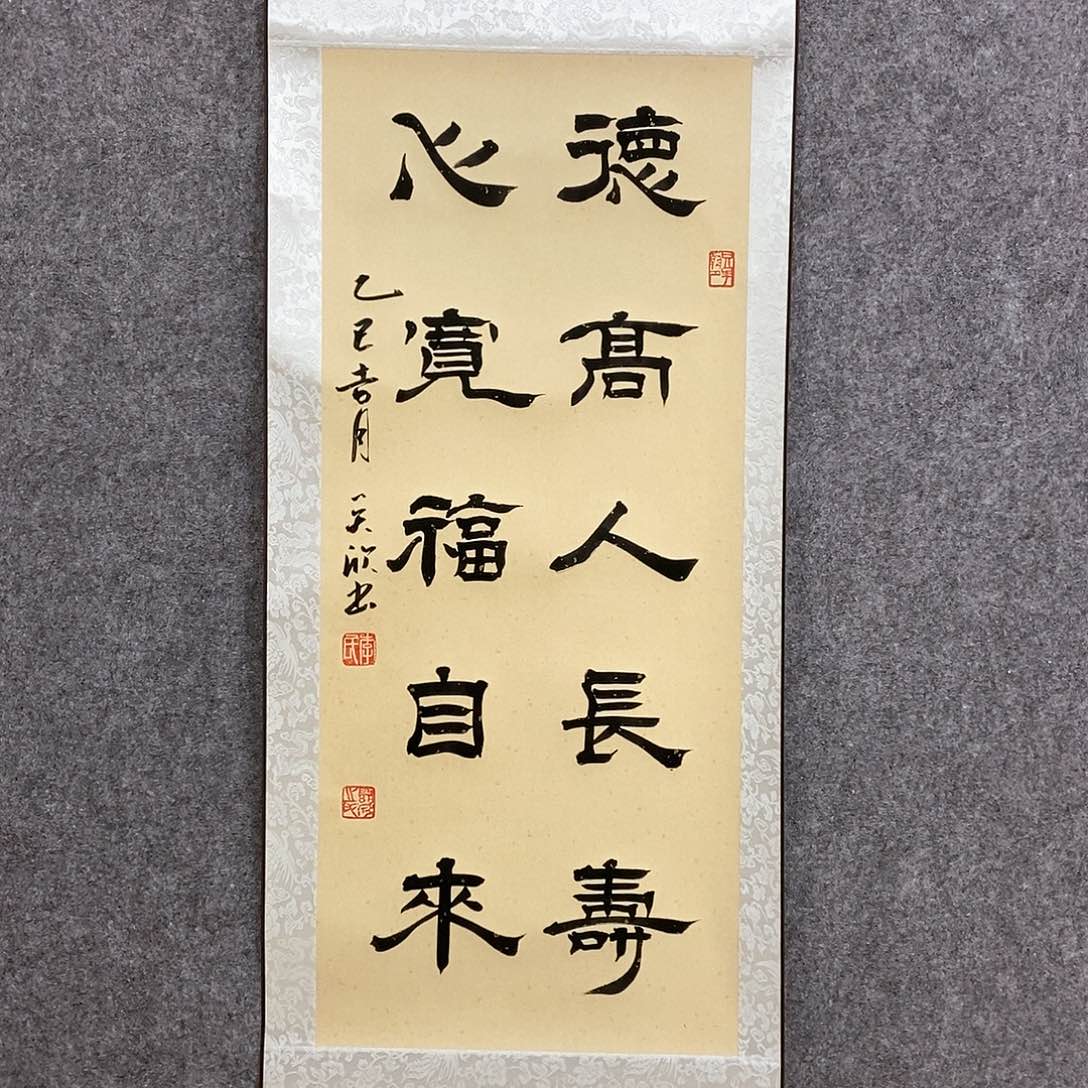 德高人長壽
心寬福自來
乙巳吉月
欣書